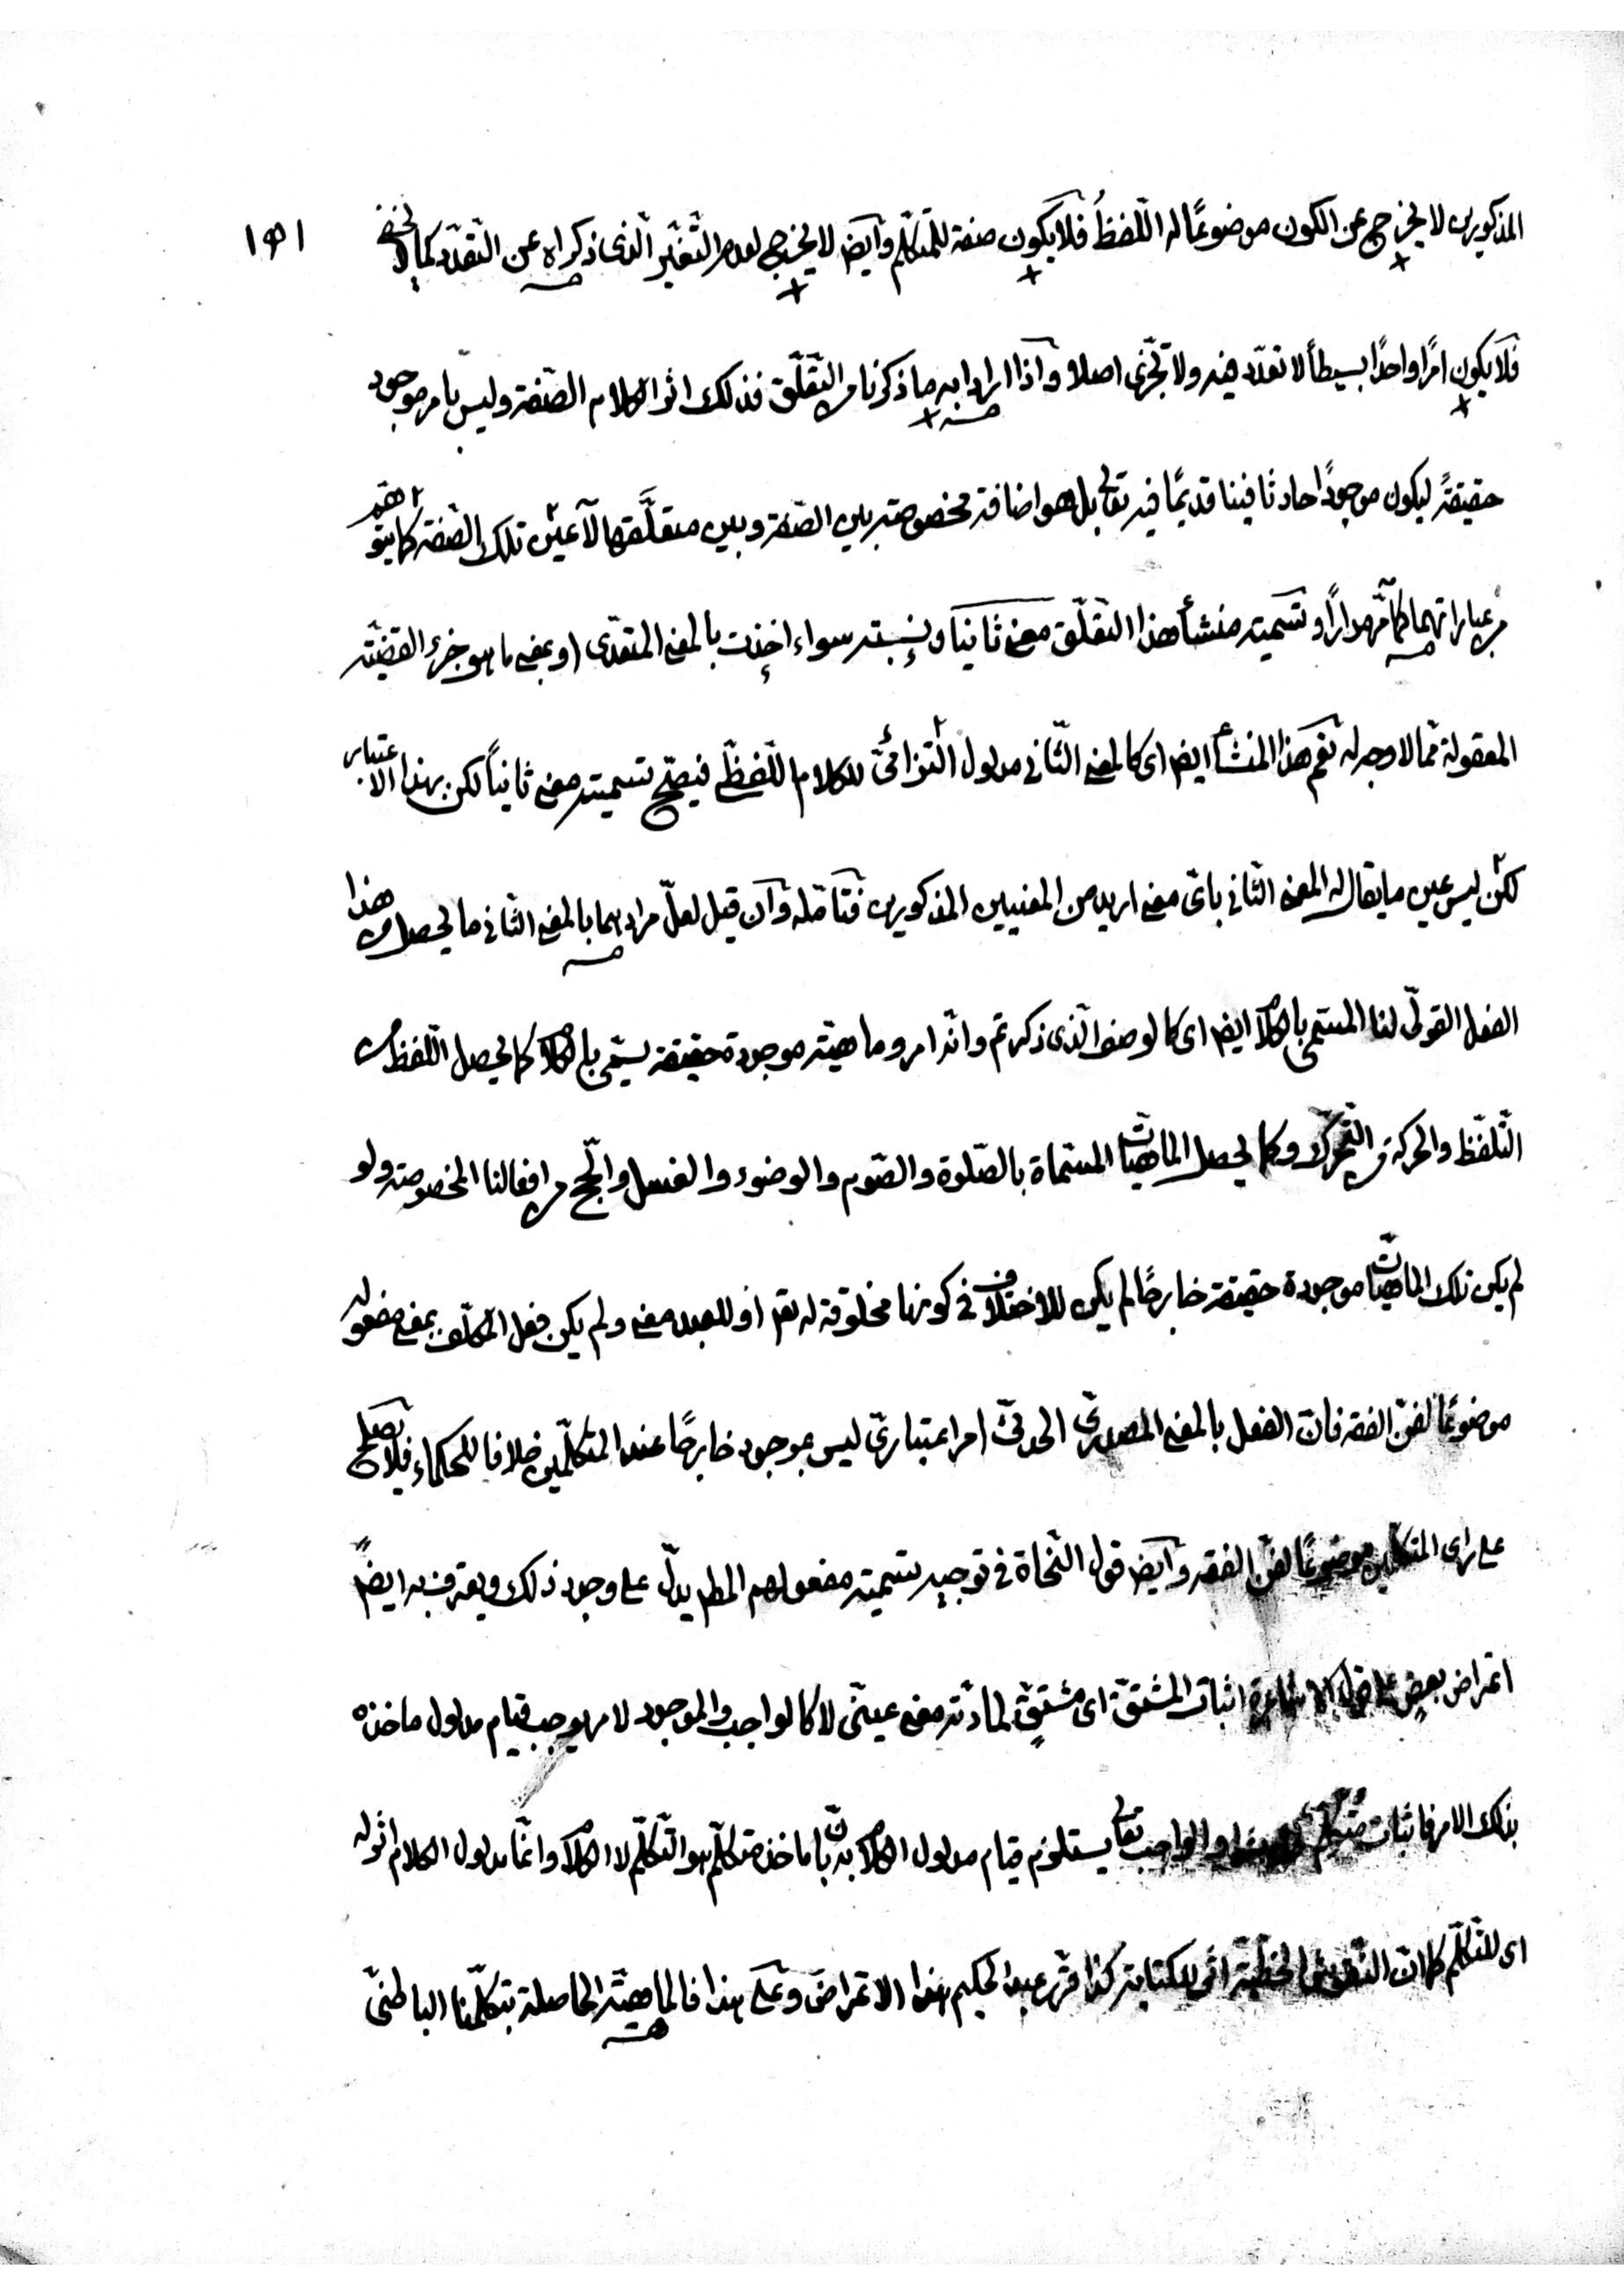 المذكورين لا يخرج عن الكون موضوعًا له اللّفظُ فلا يكون صفة للمتكلّم وآيض لا يخرج لعدم التّغيّر الّذى ذكراه عن التّعدّد كما لا يخفى
١٥١
فلا يكون امرًا واحدًا بسيطاً لا تعدّد فيه ولا تجزّى اصلا وآذا ارادا به ما ذكرنا من التّعلّق فذلك اثر الكلام الصّفة وليس بامر موجود
حقيقةً ليكون موجودًا حادثا فينا قديمًا فيه تعالى بل هو اضافة مخصوصة بين الصّفة وبين متعلَّقها لآ عين تلك الصّفة كما يتوهّم
من عباراتهما كما مرّ مرارًا وتسميته منشأ هذا التعلّق معنى ثانيا ونسبته سواء اخذت بالمعنى المتعدّى او بمعنى ما هو جزء القضيّة
المعقولة ممّا لا وجه له نعم هذا المنشأ ايض اى كالمعنى الثّانى مدلول التزامىّ للكلام اللّفظىّ فيصّح تسميته معنى ثانياً لكن بهذا الاعتبار
لكن ليس عين ما يقال له المعنى الثّانى باىّ معنى اريد من المعنيين المذكورين فتامّله وآن قيل لعلّ مرادهما بالمعنى الثانى ما يحصل من هذا
الفعل القولىّ لنا المسمّى بالكلام ايض اى كالوصف الّذى ذكرتم وانّه امر وماهيّة موجودة حقيقة يسمّى بالكلام كما يحصل اللّفظ من
التّلفّظ والحركة من التّحرّك وكما يحصل الماهيّات المسمّاة بالصّلوة والصّوم والوضوء والغسل والحّج من افعالنا المخصوصة ولو
لم يكن تلك الماهيّات موجودة حقيقة خارجًا لم يكن للاختلاف فى كونها مخلوقة له تعم او للعبد معنى ولم يكن فعل المكلّف بمعنى مفعوله
موضوعًا لفنّ الفقه فانّ الفعل بالمعنى المصدرىّ الحدثىّ امر اعتبارىّ ليس بموجود خارجًا عند المتكلّمين خلافا للحكماء فلا يصلح
على راى المتكلّمين موضوعًا لفنّ الفقه وآيض قول النّحاة فى توجيه تسمية مفعولهم المطم يدلّ على وجود ذلك ويعترف به ايضً
اعتراض بعضٍ على قول الاشاعرة اثبات المشتقّ اى مشتقٍّ لمادّته معنى عينىّ لا كالواجب والموجود لامر يوجب قيام مدلول ماخذه
بذلك الامر فاثبات متكلّم الواجب تعالى يستلزم قيام مدلول الكلام به بانّ ماخذ متكلّم هو التّكلّم لا الكلام وانّما مدلول الكلام اثر له
اى للتّكلّم كما انّ النّقوش الخطّيّة اثر للكتابة كذا قرّر عبد الحكيم هذا الاعتراض وعلى هذا فالماهيّة الحاصلة بتكلّمنا الباطنىّ